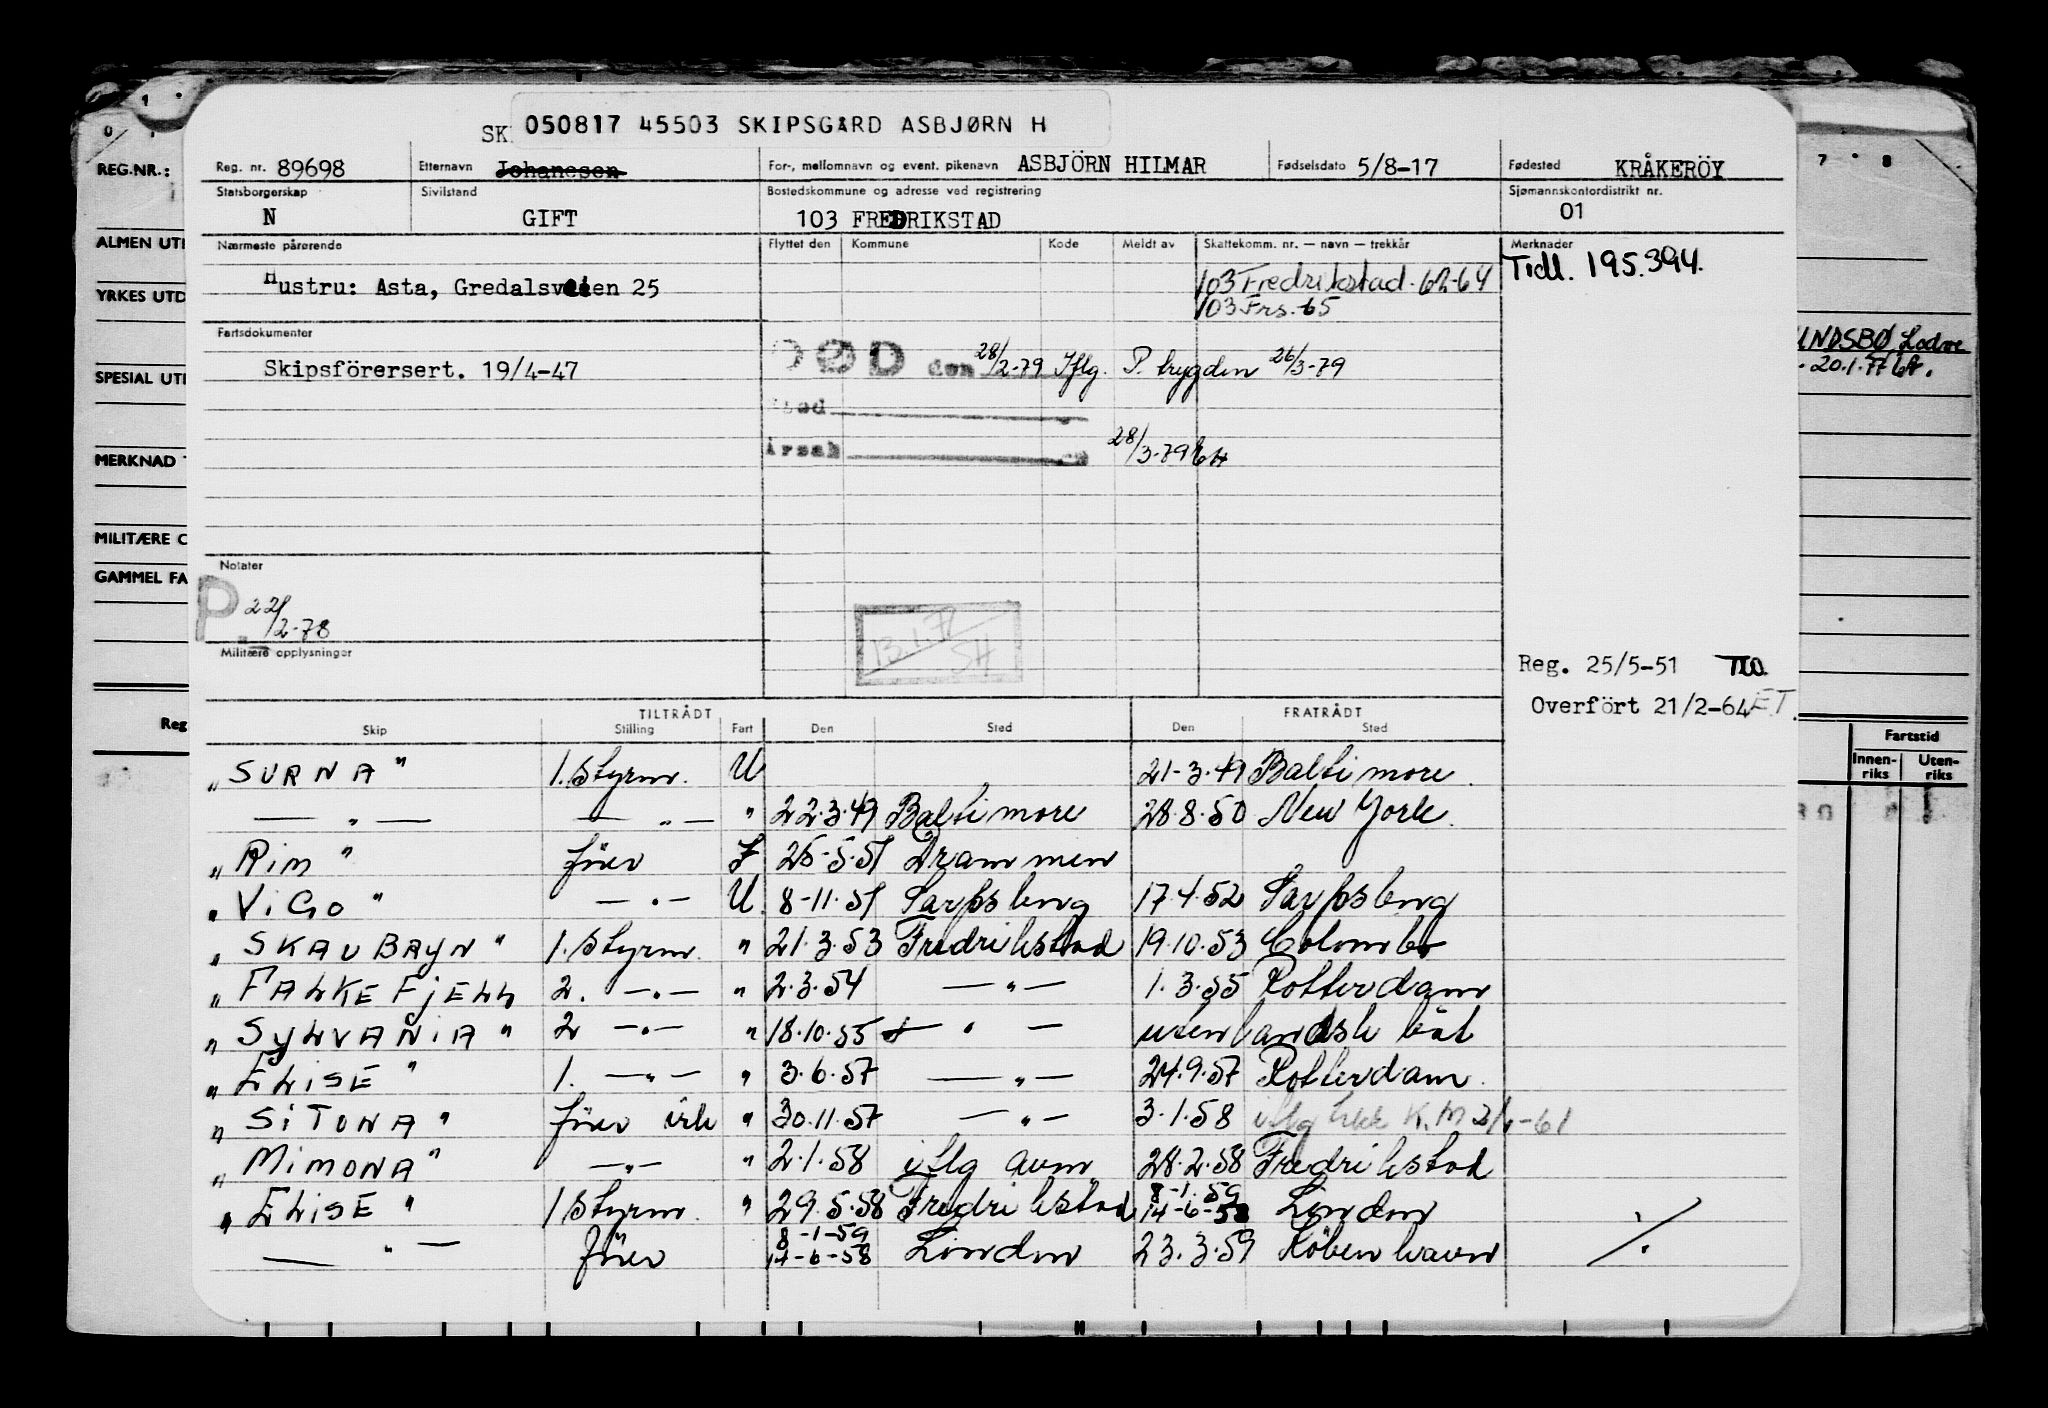 SK 050817 45503 SKIPSGÅRD ASBJØRN H
Reg. nr. 89698 Etternavn Johanesen For-, mellomnavn og event. pikenavn ASBJÖRN HILMAR Fødselsdato 5/8-17 Fødested KRÅKERÖY
Statsborgerskap Sivilstand Bostedskommune og adresse ved registrering Sjømannskontordistrikt nr.
N GIFT 103 FREDRIKSTAD 01
Nærmeste pårørende Flyttet den Kommune Kode Meldt av Skattekomm. nr. — navn — trekkår Merknader
Hustru: Asta, Gredalsveien 25 103 Fredrikstad. 62-64 Tidl. 195.394.
103 Frs. 65
Fartsdokumenter
Skipsförersert. 19/4-47 DØD den 28/2-79 Iflg. P. trygden 26/3-79
Sted
Årsak 28/3-79
Notater
P. 22/2-78
13.1.77
SH
Militære opplysninger
Reg. 25/5-51
Overfört 21/2-64 E.T.
TILTRÅDT FRATRÅDT
Skip Stilling Fart Den Sted Den Sted
" SURNA " 1. Styrm. U 21-3.49 Baltimore.
— " — — " — " 22.3.49 Baltimore 28.8.50 New York.
" Rim " förer 25-5.51 Drammen
" ViGo " — " — U. 8-11.51 Sarpsborg 17.4.52 Sarpsborg
" SKAUBRYN " 1. Styrm. " 21.3.53 Fredrikstad 19.10.53 Colombo
" FALKEFJELL 2. — " — " 2.3.54 — " — 1.3.55 Rotterdam
" SYLVANIA " 2 — " — " 18.10.55 — " — utenlandsk båt
" ELISE " 1. — " — " 3.6.57 — " — 24.9.57 Rotterdam.
" SITONA " förer " 30.11.57 — " — 3.1.58 iflg K.M -61
" MIMONA " — " — " 2.1.58 iflg 28.2.58 Fredrikstad
" ELISE " 1 Styrm. " 29.5.58 Fredrikstad 8-1-59 14-6-58 London
— " — förer 8-1-59 14-6-58 London 23.3.59 Köbenhavn ./.
REG.NR.:
ALMEN UTD
YRKES UTD
SPESIAL UTD
MERKNAD T
MILITÆRE O
GAMMEL FA
Reg
0 1
7 8
20.1.77
Fartstid
Innen-riks Uten-riks